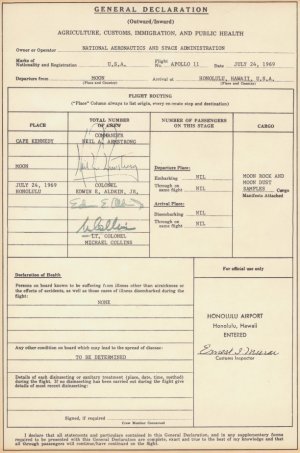 GENERAL DECLARATION
(Outward/Inward)
AGRICULTURE, CUSTOMS, IMMIGRATION, AND PUBLIC HEALTH
Owner or Operator NATIONAL AERONAUTICS AND SPACE ADMINISTRATION
Marks of Nationality and Registration U.S.A. Flight No. APOLLO 11 Date JULY 24, 1969
Departure from MOON (Place and Country) Arrival at HONOLULU, HAWAII, U.S.A. (Place and Country)
FLIGHT ROUTING
("Place" Column always to list origin, every en-route stop and destination)
PLACE
TOTAL NUMBER OF CREW
NUMBER OF PASSENGERS ON THIS STAGE
CARGO
CAPE KENNEDY
COMMANDER
NEIL A. ARMSTRONG
Neil A. Armstrong
MOON
Departure Place:
Embarking NIL
Through on same flight NIL
MOON ROCK AND
MOON DUST
SAMPLES Cargo
Manifests Attached
JULY 24, 1969
HONOLULU
COLONEL
EDWIN E. ALDRIN, JR.
Edwin E. Aldrin
Arrival Place:
Disembarking NIL
Through on same flight NIL
M Collins
LT. COLONEL
MICHAEL COLLINS
Declaration of Health
Persons on board known to be suffering from illness other than airsickness or
the effects of accidents, as well as those cases of illness disembarked during the
flight:
NONE
For official use only
HONOLULU AIRPORT
Honolulu, Hawaii
ENTERED
Ernest I. Murai
Customs Inspector
Any other condition on board which may lead to the spread of disease:
TO BE DETERMINED
Details of each disinsecting or sanitary treatment (place, date, time, method)
during the flight. If no disinsecting has been carried out during the flight give
details of most recent disinsecting:
Signed, if required
Crew Member Concerned
I declare that all statements and particulars contained in this General Declaration, and in any supplementary forms
required to be presented with this General Declaration are complete, exact and true to the best of my knowledge and that
all through passengers will continue/have continued on the flight.